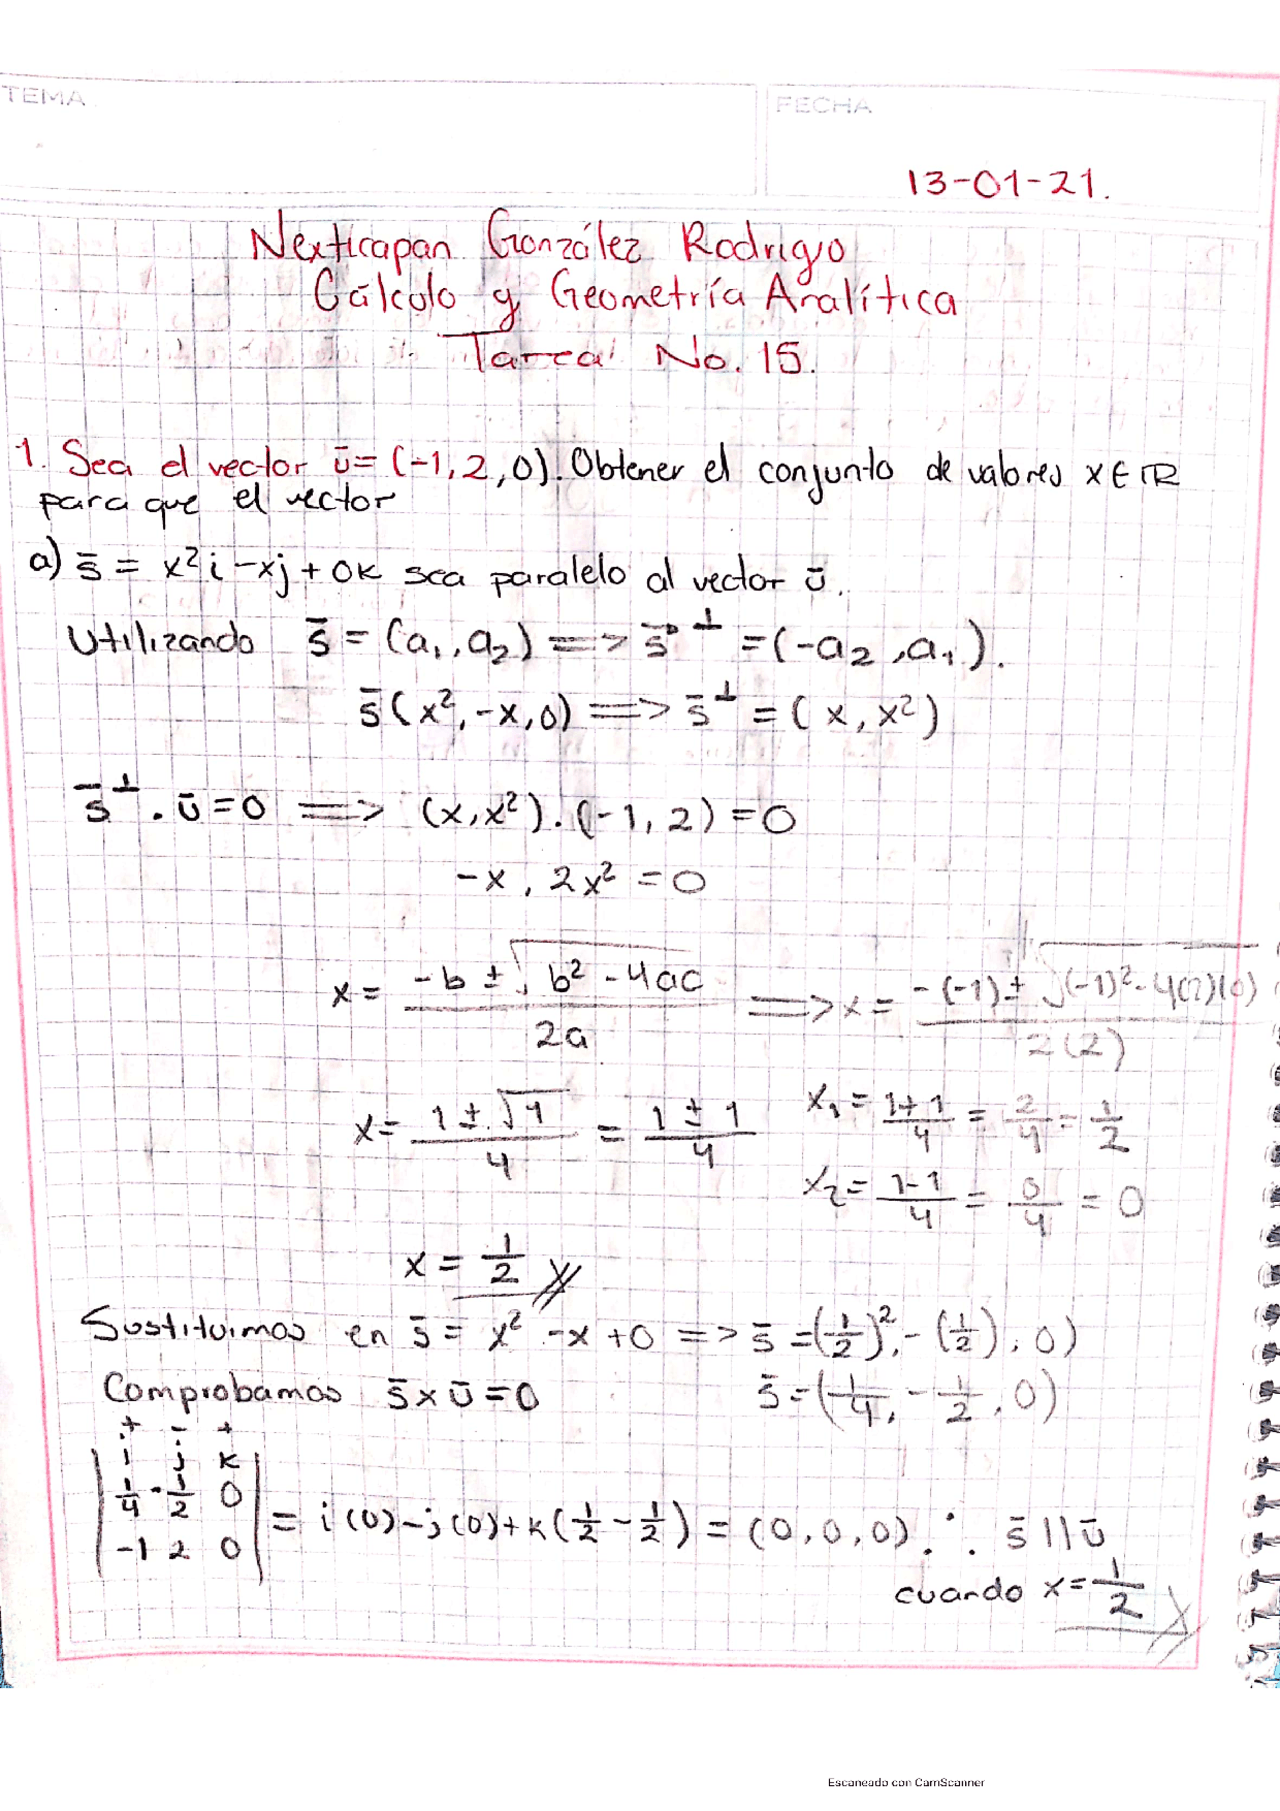 TEMA
FECHA
13-01-21.
Nexticapan González Rodrigo
Cálculo y Geometría Analítica
Tarea No. 15.
1. Sea el vector ū = (-1, 2, 0). Obtener el conjunto de valores x ∈ ℝ
para que el vector
a) s̄ = x²i - xj + 0k sea paralelo al vector ū.
Utilizando s̄ = (a₁, a₂) => s̄^⊥ = (-a₂, a₁).
s̄ (x², -x, 0) => s̄^⊥ = (x, x²)
s̄^⊥ . ū = 0 => (x, x²) . (-1, 2) = 0
-x, 2x² = 0
x = (-b ± √(b² - 4ac)) / 2a => x = (-(-1) ± √((-1)² - 4(2)(0))) / 2(2)
x = (1 ± √1) / 4 = (1 ± 1) / 4 x₁ = (1+1)/4 = 2/4 = 1/2
x₂ = (1-1)/4 = 0/4 = 0
x = 1/2
Sustituimos en s̄ = x² - x + 0 => s̄ = (1/2)², - (1/2), 0)
Comprobamos s̄ x ū = 0 s̄ = (1/4, - 1/2, 0)
+ - +
i j k
1/4 - 1/2 0 = i(0) - j(0) + k(1/2 - 1/2) = (0, 0, 0) ∴ s̄ || ū
-1 2 0
cuando x = 1/2
Escaneado con CamScanner